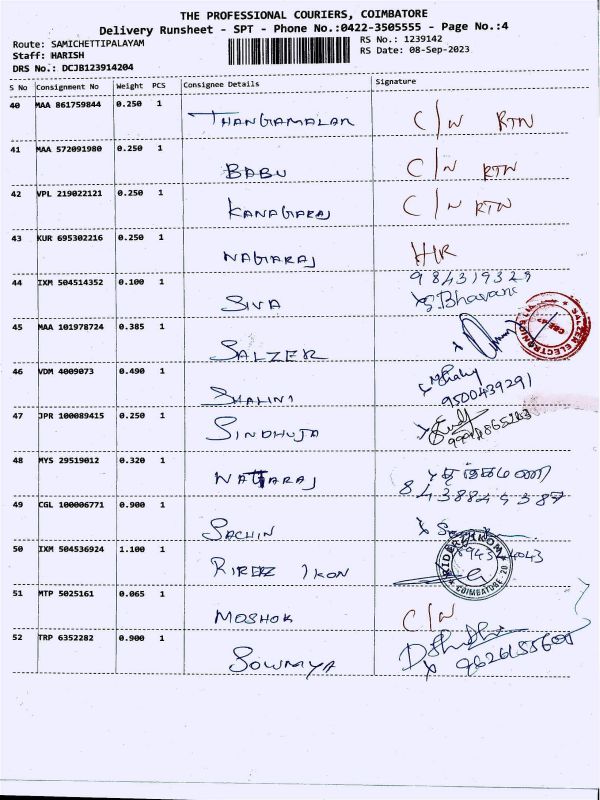 THE PROFESSIONAL COURIERS, COIMBATORE
Delivery Runsheet - SPT - Phone No.:0422-3505555 - Page No.:4
Route: SAMICHETTIPALAYAM
RS No.: 1239142
Staff: HARISH
RS Date: 08-Sep-2023
DRS No.: DCJB123914204
S No Consignment No Weight PCS Consignee Details Signature
40 MAA 861759844 0.250 1 THANGAMALAR C/N RTN
41 MAA 572091980 0.250 1 BABU C/N RTN
42 VPL 219022121 0.250 1 KANAGARAJ C/N RTN
43 KUR 695302216 0.250 1 NAGARAJ H/R
44 IXM 504514352 0.100 1 SIVA 984319329
S Bhavani
45 MAA 101978724 0.385 1 SALZER
SALZER ELECTRONICS LTD CBE-47
46 VDM 4009073 0.490 1 SHALINI
9500439291
47 JPR 100089415 0.250 1 SINDHUJA
48 MYS 29519012 0.320 1 NATARAJ
49 CGL 100006771 0.900 1 SACHIN
50 IXM 504536924 1.100 1 RIDERZ IKON
COIMBATORE-20
51 MTP 5025161 0.065 1 MOSHOK C/N
52 TRP 6352282 0.900 1 SOWMYA